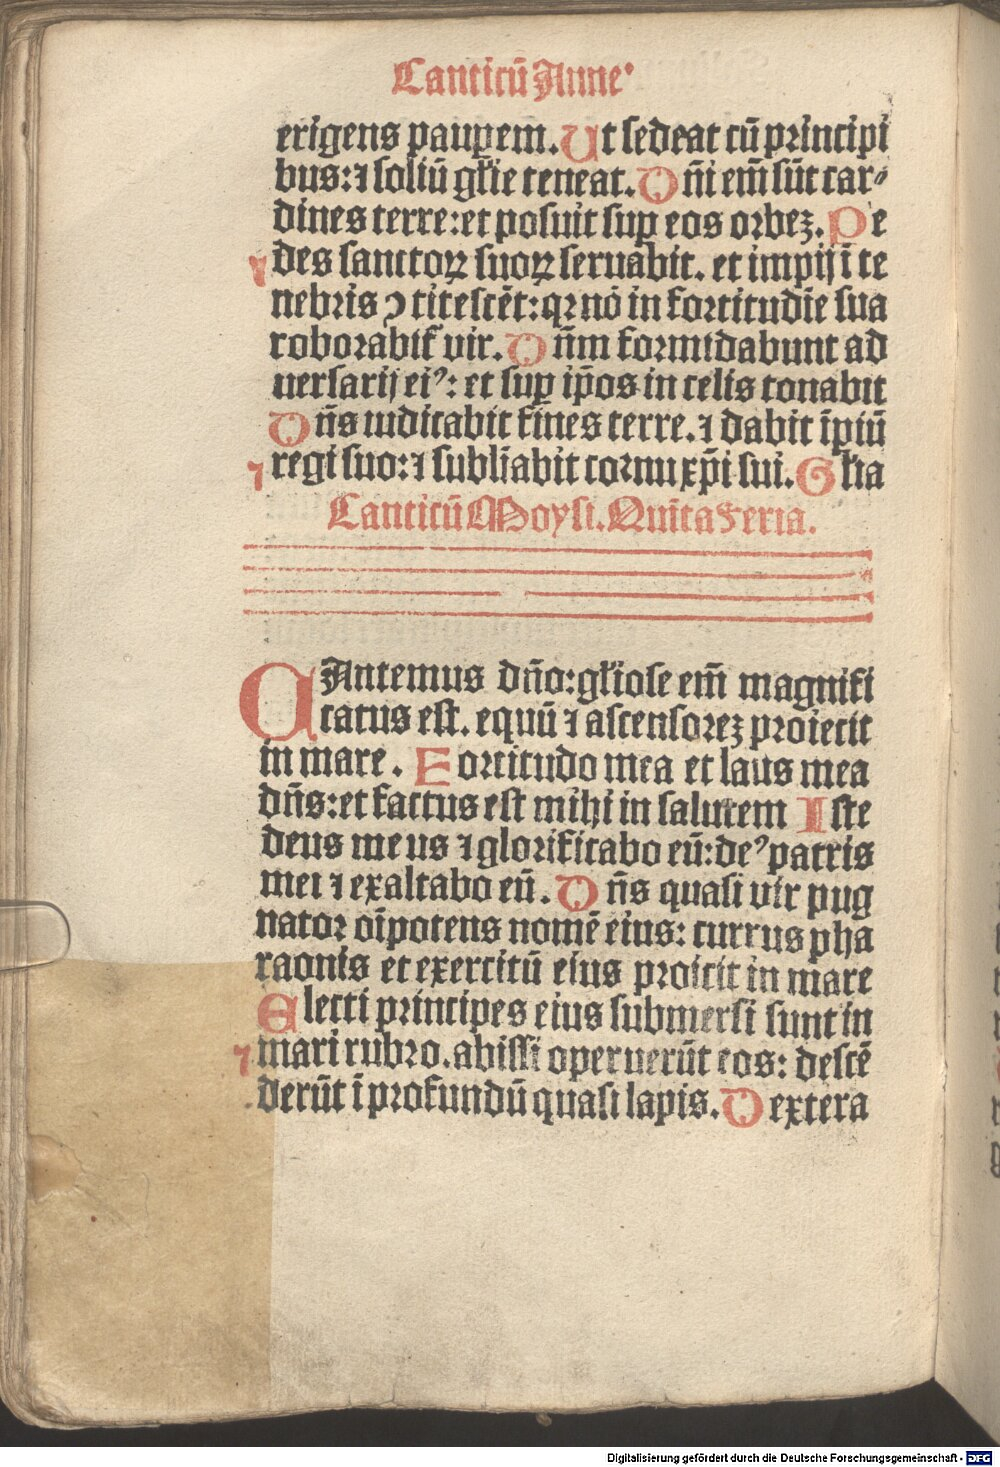 Canticū Anne
erigens paup̲em. Ut sedeat cū principi
bus: ⁊ soliū gl̄ie teneat. Dn̄i em̄ sūt car⸗
dines terre: et posuit sup̲ eos orbeꝫ. Pe
des sanctoꝝ suoꝝ seruabit. et impij ī te
nebris ↄticescēt: qꝛ nō in fortitudīe sua
roborabit᷑ vir. Dn̄m formidabunt ad
uersarij eiꝰ: et sup̲ ip̄os in celis tonabit
Dn̄s iudicabit fines terre. ⁊ dabit īpiū
regi suo: ⁊ subl̄iabit cornu xp̄i sui. Gl̄ia
Canticū Moysi. Quīta Feria.
CAntemus dn̄o: gl̄iose em̄ magnifi
catus est. equū ⁊ ascensoreꝫ proiecit
in mare. Fortitudo mea et laus mea
dn̄s: et factus est mihi in salutem Iste
deus meus ⁊ glorificabo eū: deꝰ patris
mei ⁊ exaltabo eū. Dn̄s quasi vir pug
nator oīpotens nomē eius: currus pha
raonis et exercitū eius proicit in mare
Electi principes eius submersi sunt in
mari rubro. abissi operuerūt eos: descē
derūt ī profundū quasi lapis. Dextera
Digitalisierung gefördert durch die Deutsche Forschungsgemeinschaft - DFG